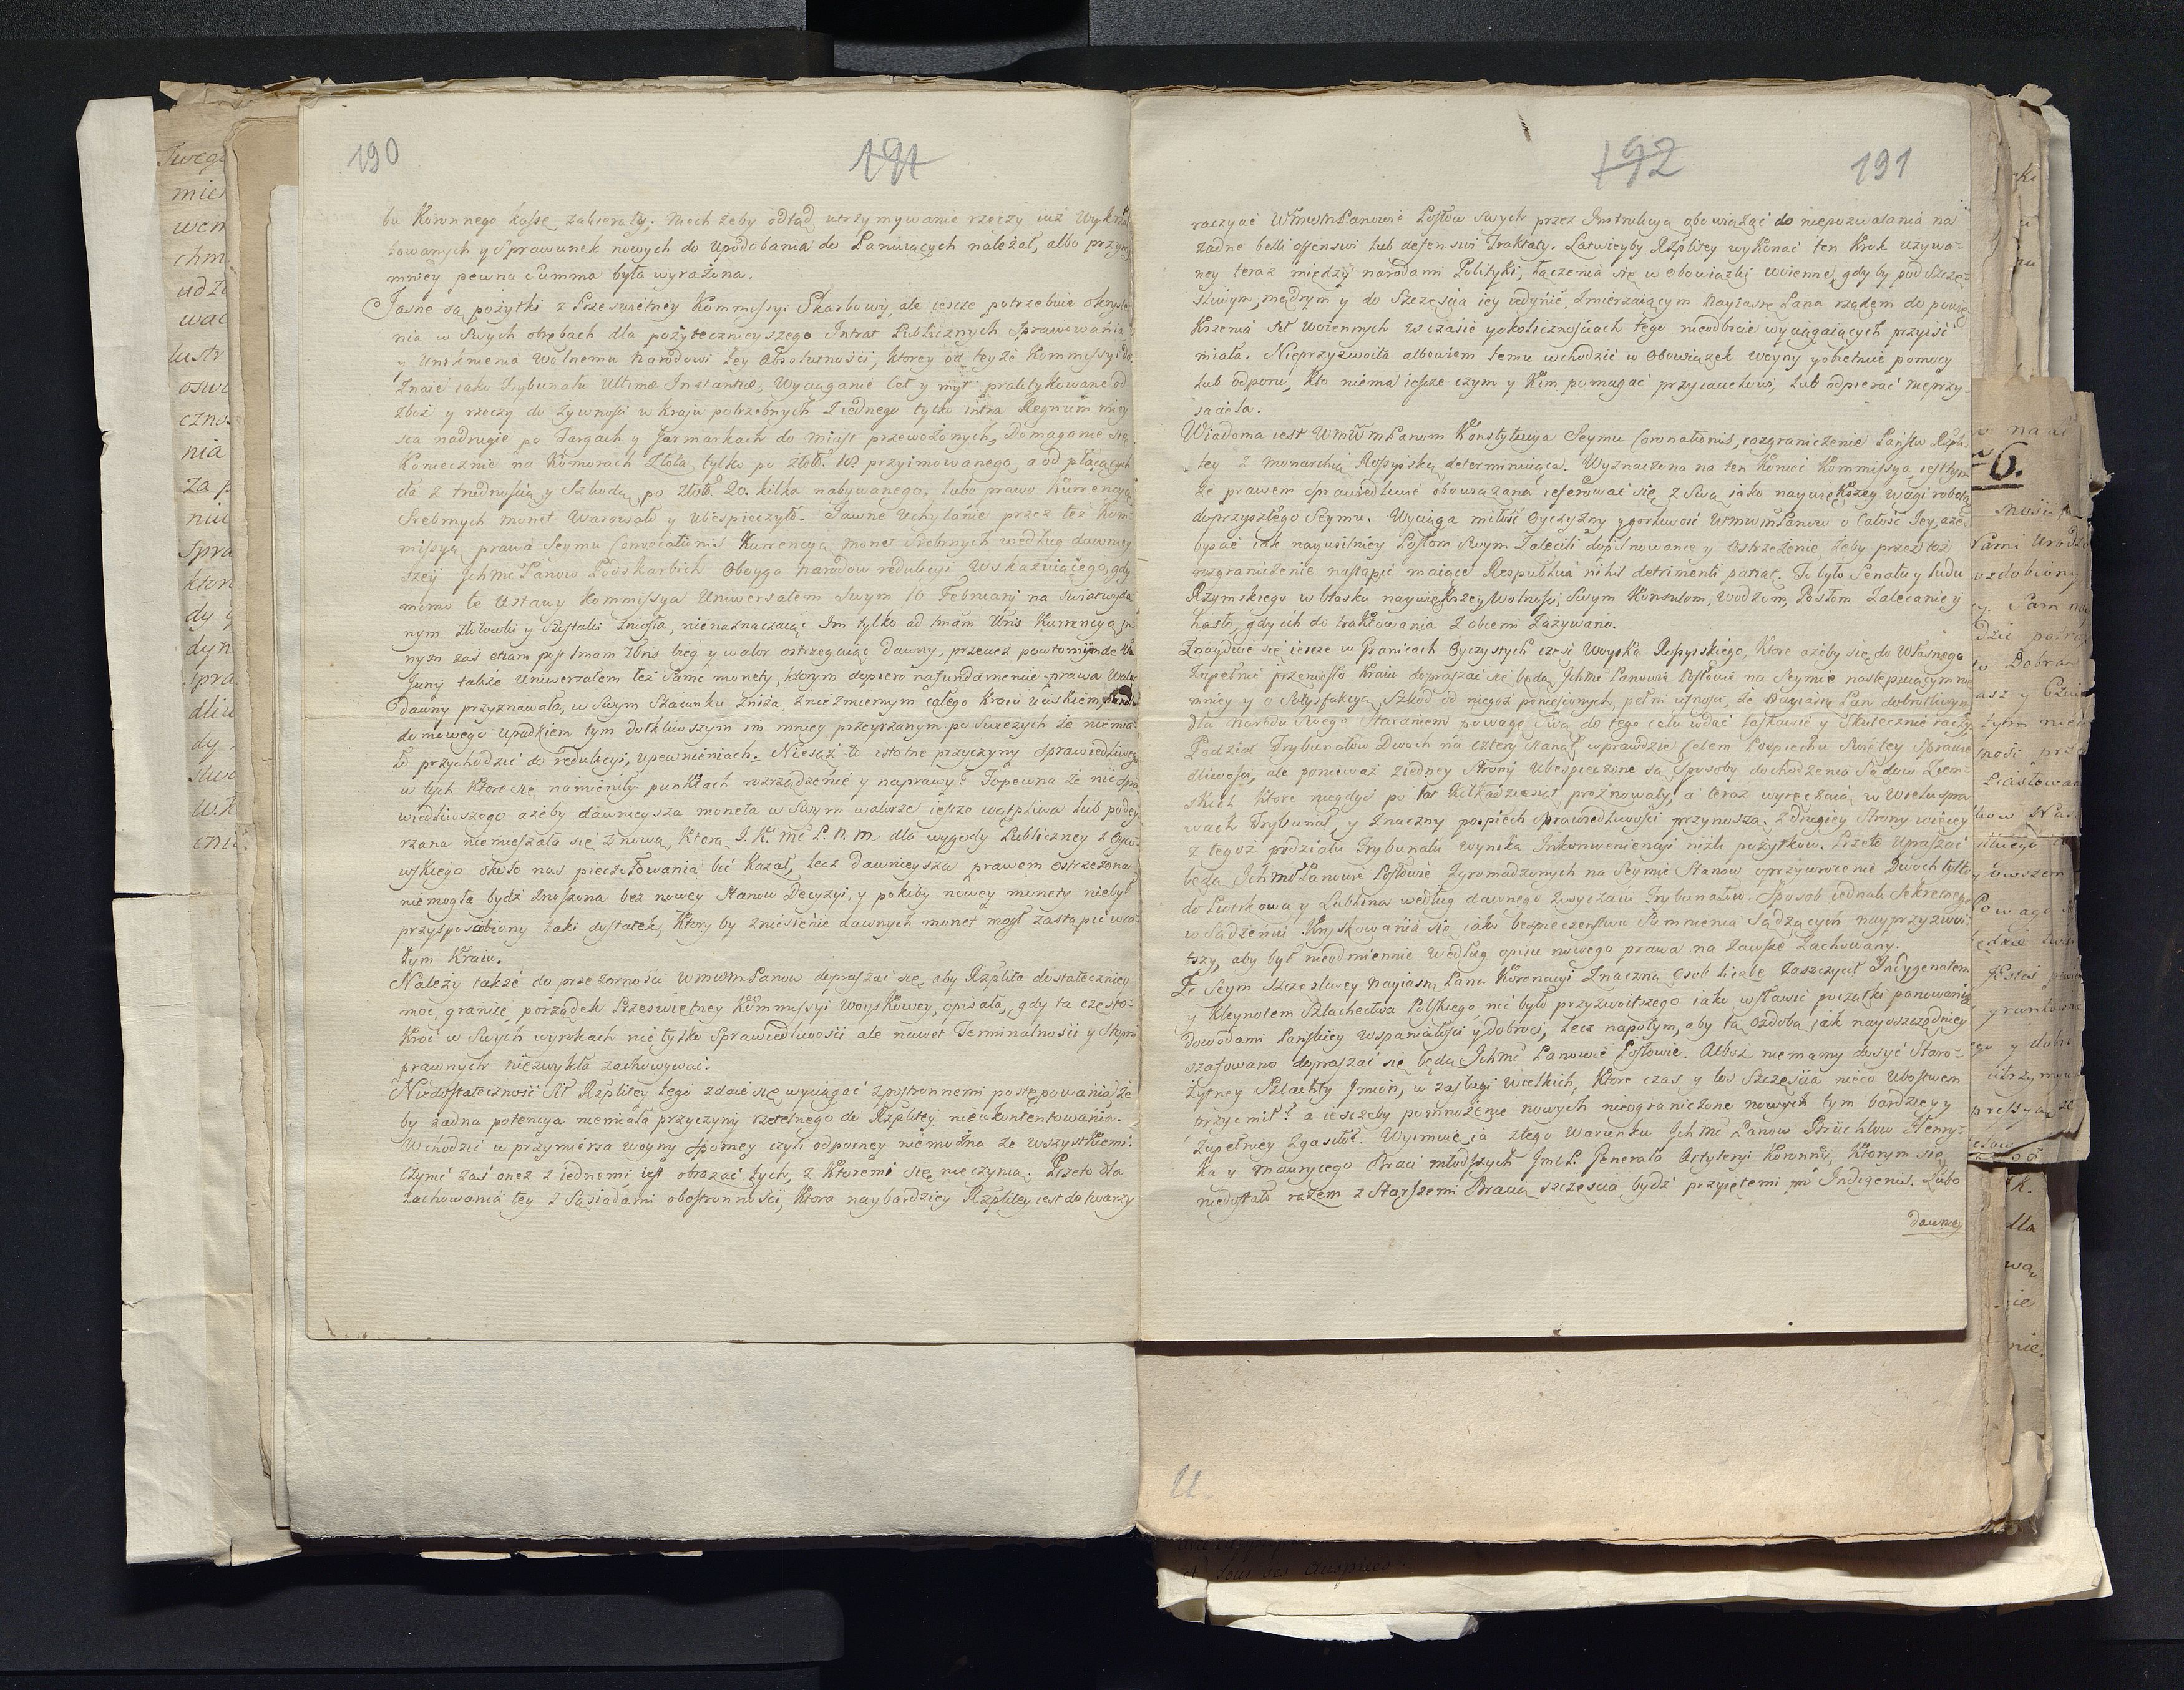 190
191
bu Koronnego kassę zabierały; niech żeby odtąd utrzymywanie rzeczy iuż
towanych y sprawunek nowych do upodobania do Panuiących należał, albo
mniey pewna Summa była wyrażona.
Jasne są pożytki z Prześwietney Kommissyi Skarbowy, ale ieszcze potrzebuie
nia w swych obrębach dla pożytecznieyszego Intrat Publicznych sprawowania,
y Uniknienia Wolnemu narodowi tey absolutności, ktorey od teyże Kommissyi
znaie iako Trybunału Ultimæ Instantiæ, Wyciąganie Ceł y myt praktykowane od
zboż y rzeczy do żywności w kraju potrzebnych z iednego tylko intra Regnum miey
sca nadrugie po Targach y Jarmarkach do miast przewożonych, Domaganie się
koniecznie na Komorach złota, tylko po złoł. 18 przyimowanego, a od płacących
za z trudnością y Szkodą po złoł. 20. kilka nabywanego, lubo prawo Kurrencyą
Srebrnych monet Warowało y Ubespieczyło. Jawne Uchylanie przez też Kom-
missyą prawa Seymu Convocationis Kurrencyą monet Srebrnych według dawniey
szey JchMć Panow Podskarbich Oboyga Narodow redukcyi wskazuiącego, gdy
mimo te Ustawy Kommissya Uniwersałem swym 10 Februarij na świat wyda
nym złotowki y Szostaki zniosła, nienaznaczaiąc Im tylko ad 1mam Xbris Kurrencyą,
nym zaś etiam post 1mam Xbris bieg y walor ostrzegaiąc dawny, przecież powtornym de
Junij także Uniwerzałem też same monety, ktorym dopiero na fundamencie prawa Walor
dawny przyznawała, w swym Szacunku zniża, z niezmiernym całego kraiu uciskiem,
domowego upadkiem tym dotkliwszym im mniey przeyrzanym po świeżych że niemia
ło przychodzić do redukcyi, upewnieniach. Niesąż to istotne przyczyny sprawiedliwego
w tych ktore się namieniły punktach rozrządzenie y naprawy? To pewna że nic spra
wiedliwszego ażeby dawnieysza moneta w swym walorze ieszcze wątpliwa lub podey
rzana niemieszała się z nową, ktorą J. K. Mć P. N. M. dla wygody Publiczney z Oyco
wskiego około nas pieczołowania bić kazał, lecz dawnieysza prawem ostrzeżona
niemogła bydź zniesiona bez nowey Stanow Decyzyi, y pokiby nowey monety niebył
przysposobiony taki dostatek, ktory by zniesienie dawnych monet mogł zastąpić w ca-
łym kraiu.
Należy także do przezorności WMWMPanow dopraszać się, aby Rzplita dostateczniey
moc, granice, porządek Prześwietney Kommissyi Woyskowey, opisała, gdy ta często-
kroć w swych wyrokach nie tylko Sprawiedliwości ale nawet Terminalności y Stopni
prawnych niezwykła zachowywać.
Niedostateczność sił Rzplitey tego zdaie się wyciągać z postronnemi postępowania, że
by żadna potencya niemiała przyczyny rzetelnego do Rzplitey nieukontentowania.
Wchodzić w przymierza woyny sporney czyli odporney niemożna ze wszystkiemi.
Czynić zaś onez z iednemi iest obrażać tych, z ktoremi się nieczynią. Przeto dla
zachowania tey z Sąsiadami obostronności, ktora naybardziey Rzplitey iest do twarzy
192
191
raczycie WMWMPanowie Posłow swych przez Instrukcyą obowiązać do niepozwalania na
żadne belli offensivi lub defensivi Traktaty. Łatwieyby Rzplitey wykonać ten krok używa-
ney teraz między narodami Polityki, łączenia się w obowiązki woienne, gdyby pod szczę-
śliwym, mądrym y do szczęścia iey iedynie zmierzaiącym Nayiaśn. Pana rządem do powię
kszenia sił woiennych w czasie y okolicznościach tego nieodbicie wyciągaiących, przyiść
miała. Nieprzyzwoita albowiem temu wchodzić w obowiązek woyny y obietnic pomocy
lub odporu, kto niema ieszcze czym y kim pomagać przyiacielowi, lub odpierać nieprzy-
iaciela.
Wiadoma iest WMWMPanom Konstytucya Seymu Coronationis, rozgraniczenie Państw Rzpli
tey z Monarchią Rossyiską determinuiąca. Wyznaczona na ten koniec Kommissya, iest tym
że prawem sprawiedliwie obowiązana referować się z swą iako naywiększey wagi robotą
do przyszłego Seymu. Wyciąga miłość Oyczyzny y gorliwość WMWMPanow o Całość Jey, aże
byście iak nayusilniey Posłom swym zalecili dopilnowanie y ostrzeżenie, żeby przez toż
rozgraniczenie nastąpić maiące Respublica nihil detrimenti patiat. To było Senatu y ludu
Rzymskiego w blasku naywiększey Wolności, swym Konsulom, Wodzom, Posłom zalecanie y
hasło, gdy ich do traktowania z obcemi zażywano.
Znayduie się ieszcze w Granicach Oyczystych część Woyska Rossyiskiego, ktore ażeby się do własnego
zupełnie przeniosło kraiu dopraszać się będą Jchmć Panowie Posłowie na Seymie następuiącym nie
mniey y o Satysfakcyą Szkod od niegoż poniesionych, pełni ufności, że Nayiaśn. Pan dobrotliwym
dla Narodu swego Staraniem powagę swą do tego celu wdać łaskawie y skutecznie raczy.
Podział Trybunałow Dwoch na cztery stanął wprawdzie Celem Pospiechu świętey Sprawie
dliwości, ale ponieważ z iedney strony Ubespieczone są sposoby dochodzenia Sądow Ziem-
skich ktore niegdyś po lat kilkadziesiąt prożnowały, a teraz wyręczaią w wielu spra
wach Trybunał, y znaczny pospiech Sprawiedliwości przynoszą. Z drugiey strony więcey
z tegoż podziału Trybunału wynika Inkonweniencyi niżli pożytkow. Przeto Upraszać
będą JchMć Panowie Posłowie zgromadzonych na Seymie Stanow o przywrocenie Dwoch tylko
do Piotrkowa y Lublina według dawnego zwyczaiu Trybunałow. Sposob iednak Sekretnego
w Sądzeniu Kryskowania się iako bezpieczeństwu Sumnienia Sądzących nayprzyzwoi-
tszy, aby był nieodmiennie według opisu nowego prawa na zawsze zachowany.
Że Seym szczęśliwey Nayiaśn. Pana Koronacyi znaczną osob liczbę zaszczycił Indygenatem
y Kleynotem Szlachectwa Polskiego, nic było przyzwoitszego iako wsławić początki panowania
dowodami Pańskiey wspaniałości y dobroci, lecz napotym, aby tą ozdobą iak nayoszczędniey
szafowano dopraszać się będą Jchmć Panowie Posłowie. Alboż niemamy dosyć Staro-
żytney Szlachty Jmion, w zasługi wielkich, ktore czas y los szczęścia nieco Ubostwem
przyćmił? a ieszczeby pomnożenie nowych nieograniczone nowych tym bardziey y
zupełniey zgasiło? Wyimuie ia z tego warunku Jchmć Panow Briuchlow Henry-
ka y Maurycego Braci młodszych Jmć P. Generała Artyleryi Koronney, ktorym się
niedostało razem z Starszemi Bracią szczęścia bydź przyiętemi in Indigenas. Lubo
dawniey
U.
6.